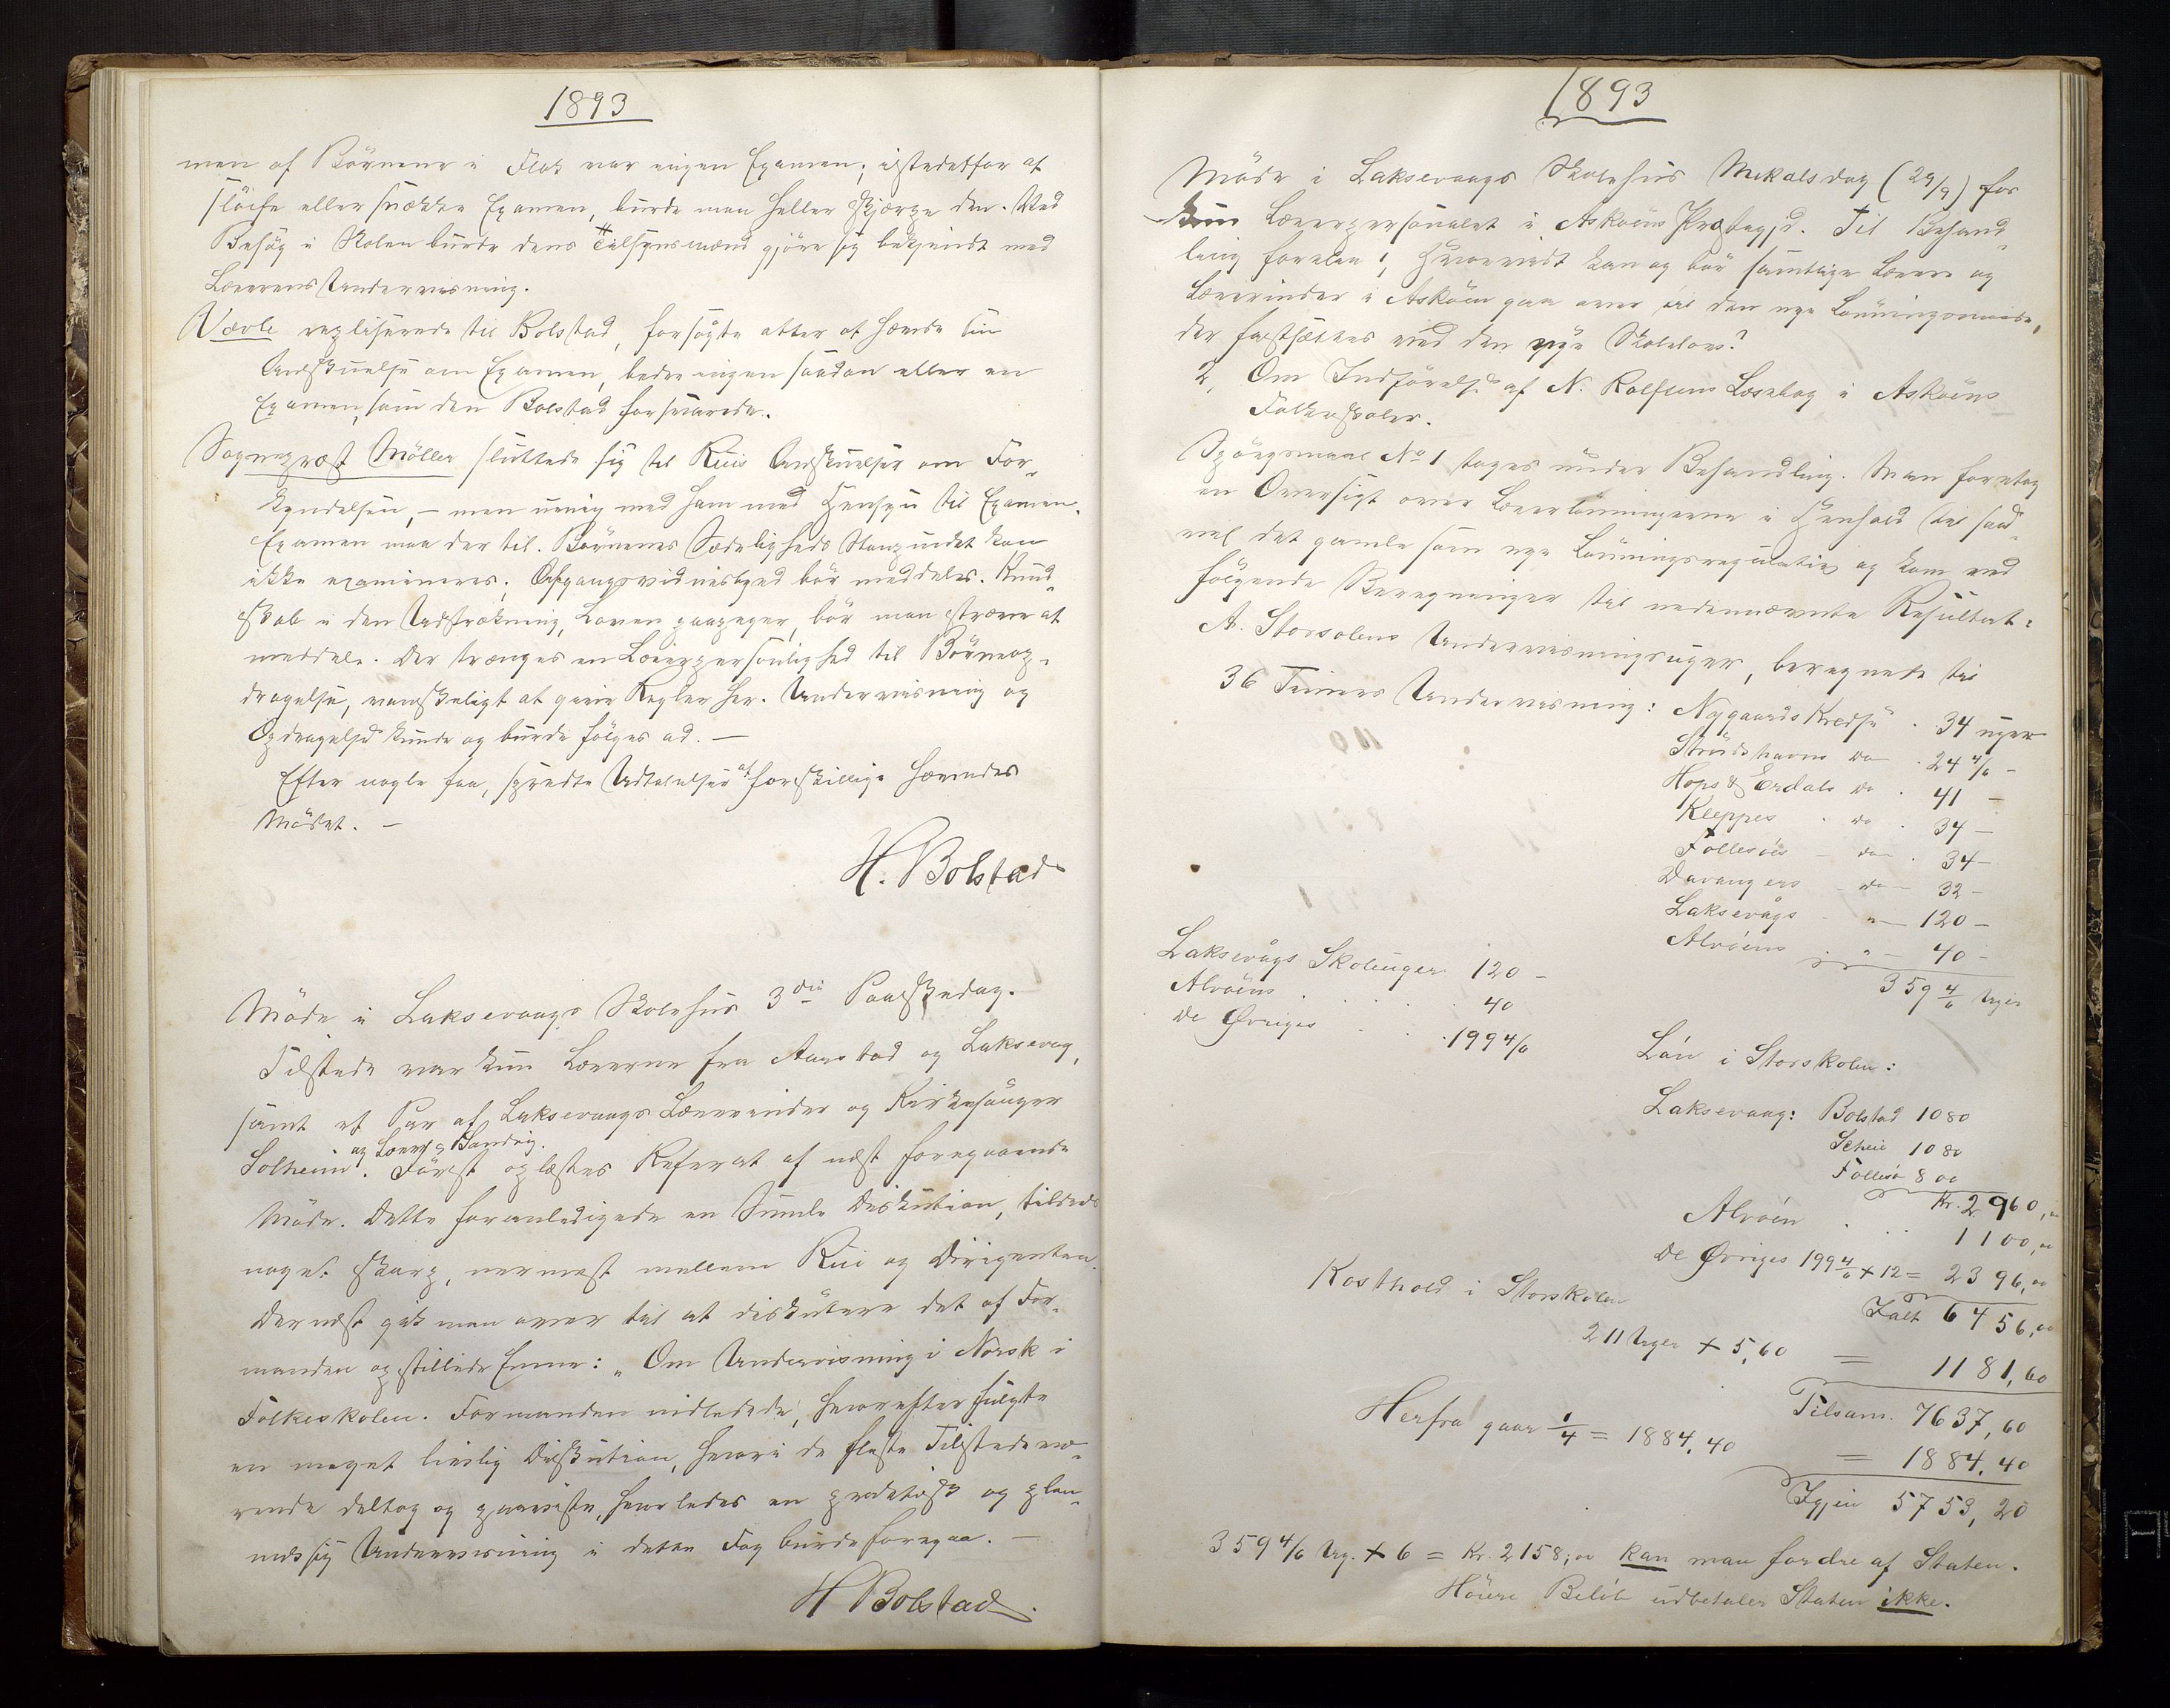 1893
men af Börnene i Flok var ingen Examen; istedetfor at
slöife eller svække Examen, burde man heller skjærpe den. Ved
Besøg i Skolen burde dens Tilsynsmænd gjöre sig bekjendt med
Lærerens Undervisning.
Vævle repliserede til Bolstad, forsøgte atter at hævde sin
Anskuelse om Examen, bedre ingen saadan eller en
Examen, som den Bolstad forsvarede.
Sogneprest Möller sluttede sig til Riis Anskuelser om For-
kyndelsen, – men uenig med ham med Hensyn til Examen.
Examen maa der til. Börnenes Sædeligheds Standpunkt kan
ikke examineres; Afgangsvidnesbyrd bör meddeles. Kund-
skab i den Udstrækning, Loven paapeger, bör man stræve at
meddele. Der trænges en Lærerpersonlighed til Börneop-
dragelse, vanskeligt at give Regler her. Undervisning og
Opdragelse kunde og burde følges ad. –
Efter nogle faa, spredte Udtalelser af forskjellige hævedes
Mödet. –
H. Bolstad
Möde i Laksevaags Skolehus 3die Paaskedag.
Tilstede var kun Lærerne fra Aarstad og Laksevag,
samt et Par af Laksevaags Lærerinder og Kirkesanger
og Lærer Sandvig.
Solheim. Först oplæstes Referat af nest foregaaende
Möde. Dette foranledigede en Smule Diskution, tildeels
noget skarp, nermest mellem Riis og Dirigenten.
Dernest gik man over til at diskutere det af For-
manden opstillede Emne: „Om Undervisning i Norsk i
Folkeskolen. Formanden indledede, hvorefter fulgte
en meget livlig Diskution, hvori de fleste Tilstedevæ-
rende deltog og paaviste, hvorledes en praktisk og plan-
mæssig Undervisning i dette Fag burde foregaa. –
H Bolstad.
1893
Möde i Laksevaags Skolehus Mikalsdag (29/9) for
kun Lærerpersonalet i Asköens Prestegjd. Til Behand-
ling forelaa 1, Hvorvidt kan og bör samtlige Lærere og
Lærerinder i Asköen gaa over til den nye Lönningsmaade,
der fastsættes ved den nye Skolelov?
2, Om Indförelse af N. Rolfsens Læsebog i Asköens
Folkeskoler.
Spörgsmaal No 1 toges under Behandling. Man foretog
en Oversigt over Lærerlönningerne i Henhold til saa-
vel det gamle som nye Lönningsregulativ og kom ved
fölgende Beregninger til nedennævnte Resultat:
A. Storskolens Undervisningsuger, beregnet til
36 Timers Undervisning: Nygaards Kredse . 34 uger
Strudshavns do . 24 4/6 –
Hops & Erdals do . 41 –
Kleppes . do . 34 –
Follesöes – do . 34 –
Davangers – do – 32 –
Laksevågs – " – 120 –
Alvöens . " – 40 –
359 4/6 Uger
Laksevågs Skoleuger 120 –
Alvöens . . . . 40
De Övriges . . . 199 4/6
Lön i Storskolen:
Laksevaag: Bolstad 1080
Schei 1080
Follesö 800
Kr. 2960,00
Alvöen . . 1100,00
De Övriges 199 4/6 + 12 = 2396,00
Ialt 6456,00
Kosthold i Storskolen
211 Uger + 5,60 = 1181,60
Tilsam. 7637,60
Herfra gaar 1/4 = 1884,40 = 1884,40
Igjen 5753,20
359 4/6 Ug. + 6 = Kr. 2158,00 kan man fordre af Staten.
Höiere Belöb udbetaler Staten ikke.